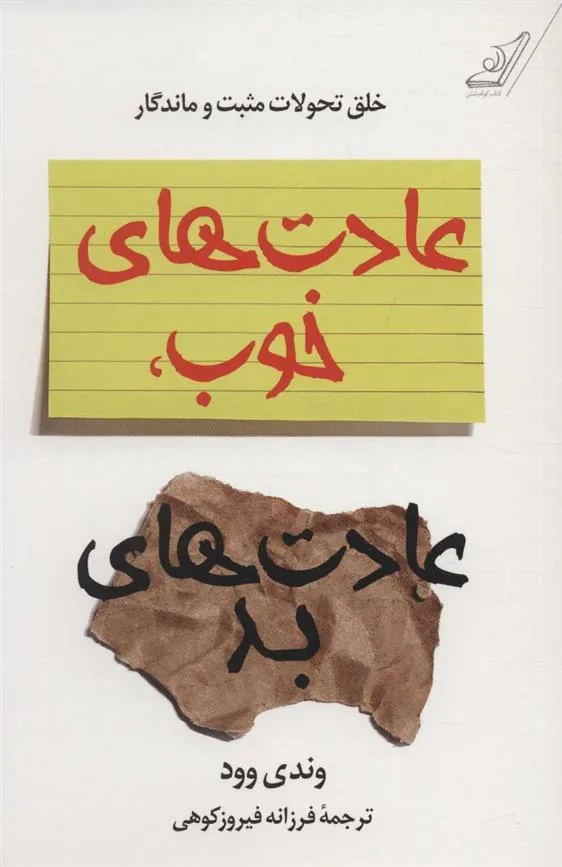 کتاب کوله‌پشتی
خلق تحولات مثبت و ماندگار
عادت‌های
خوب،
عادت‌های
بد
وندی وود
ترجمهٔ فرزانه فیروزکوهی